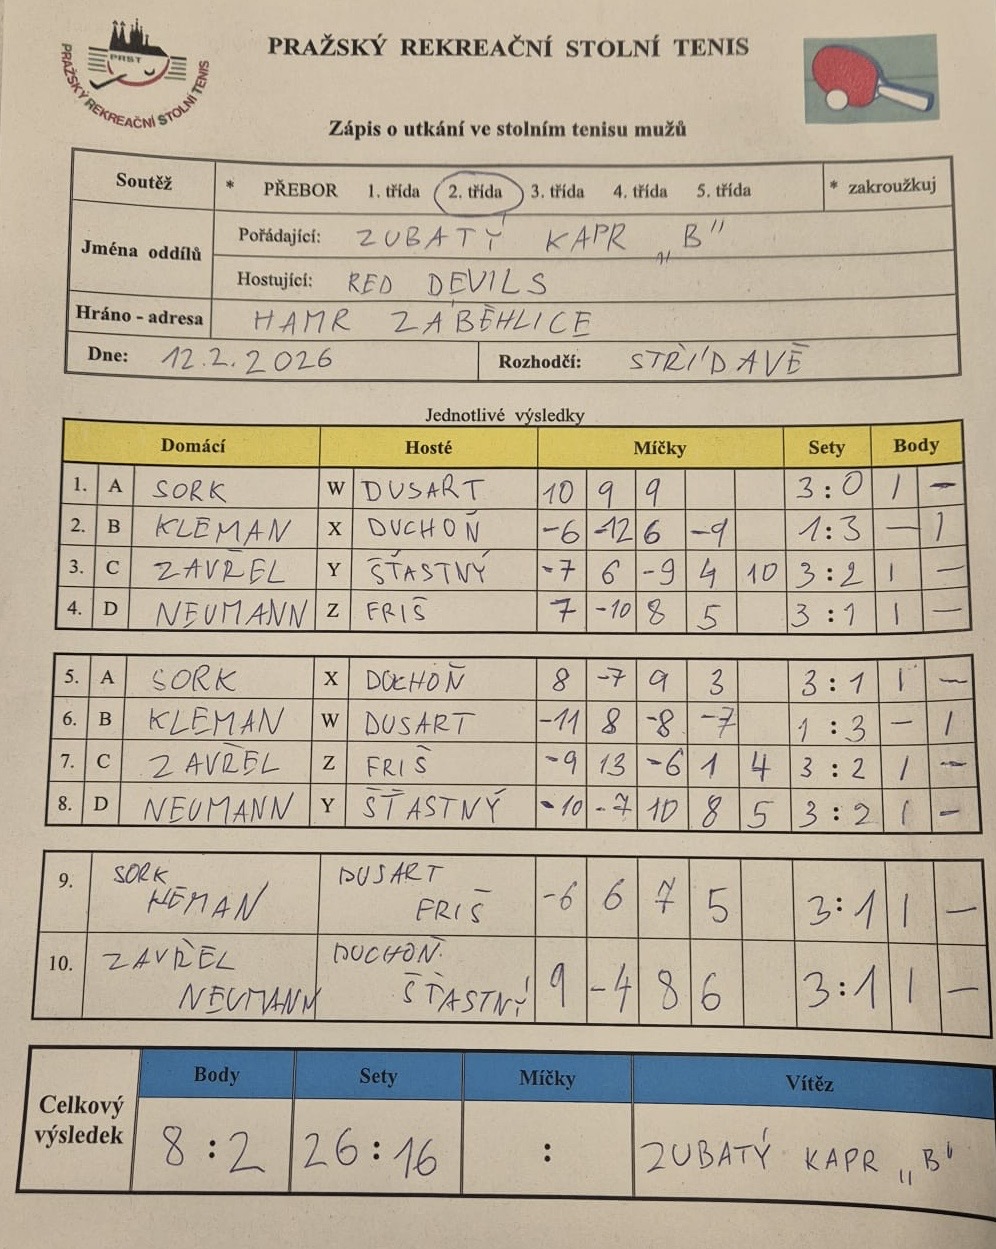 PRAŽSKÝ REKREAČNÍ STOLNÍ TENIS
PRST
PRAŽSKÝ REKREAČNÍ STOLNÍ TENIS
Zápis o utkání ve stolním tenisu mužů
Soutěž * PŘEBOR 1. třída 2. třída 3. třída 4. třída 5. třída * zakroužkuj
Jména oddílů
Pořádající: ZUBATÝ KAPR „B"
Hostující: RED DEVILS
Hráno - adresa HAMR ZÁBĚHLICE
Dne: 12.2.2026 Rozhodčí: STŘÍDAVĚ
Jednotlivé výsledky
Domácí Hosté Míčky Sety Body
1. A SORK W DUSART 10 9 9 3:0 1 -
2. B KLEMAN X DUCHOŇ -6 -12 6 -9 1:3 - 1
3. C ZAVŘEL Y ŠŤASTNÝ -7 6 -9 4 10 3:2 1 -
4. D NEUMANN Z FRIŠ 7 -10 8 5 3:1 1 -
5. A SORK X DUCHOŇ 8 -7 9 3 3:1 1 -
6. B KLEMAN W DUSART -11 8 -8 -7 1:3 - 1
7. C ZAVŘEL Z FRIŠ -9 13 -6 1 4 3:2 1 -
8. D NEUMANN Y ŠŤASTNÝ -10 -7 10 8 5 3:2 1 -
9. SORK DUSART -6 6 7 5 3:1 1 -
FRIŠ
10. ZAVŘEL DUCHOŇ 9 -4 8 6 3:1 1 -
NEUMANN ŠŤASTNÝ
Celkový výsledek
Body Sety Míčky Vítěz
8:2 26:16 : ZUBATÝ KAPR „B"